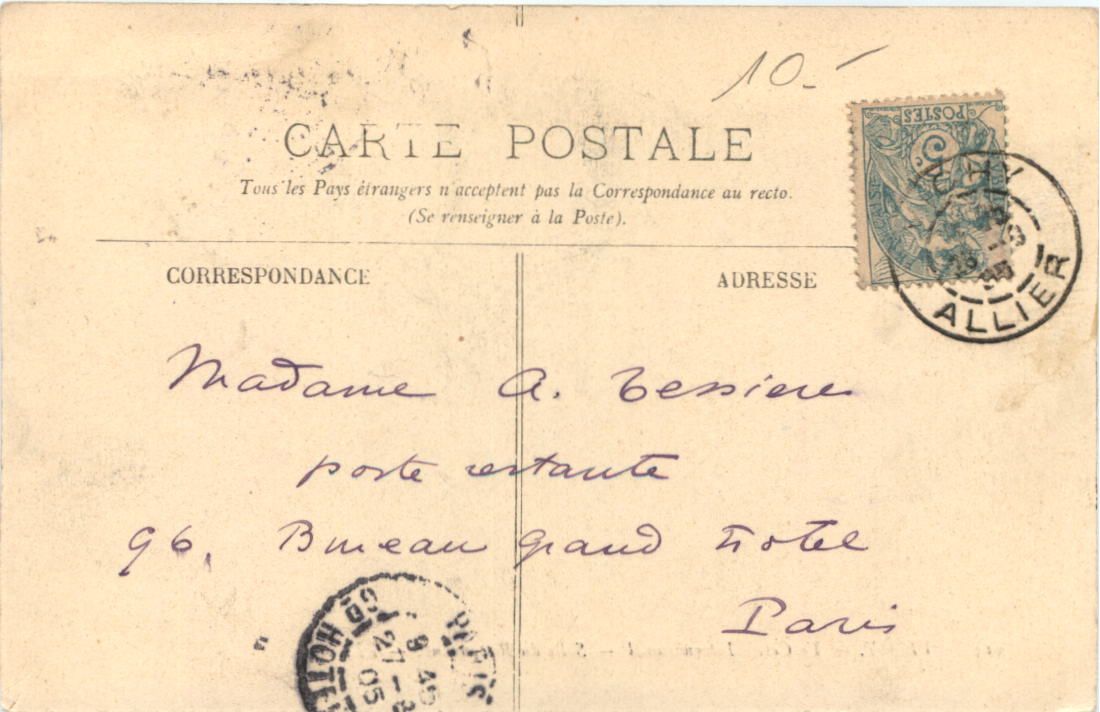 10.-
CARTE POSTALE
Tous les Pays étrangers n'acceptent pas la Correspondance au recto.
(Se renseigner à la Poste).
POSTES
5
ALLIER
CORRESPONDANCE
ADRESSE
Madame A. Tessiere
poste restante
96, Bureau grand Hotel
Paris
PARIS
GD HOTEL
9 40
27 - 8
05